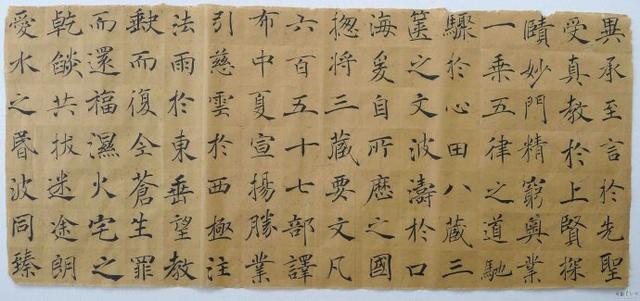 異承至言於先聖
受真教於上賢探
賾妙門精窮奧業
一乘五律之道馳
驟於心田八藏三
篋之文波濤於口
海爰自所歷之國
揔將三藏要文凡
六百五十七部譯
布中夏宣揚勝業
引慈雲於西極注
法雨於東垂望教
缺而復全蒼生罪
而還福濕火宅之
乾燄共拔迷途朗
愛水之昬波同臻